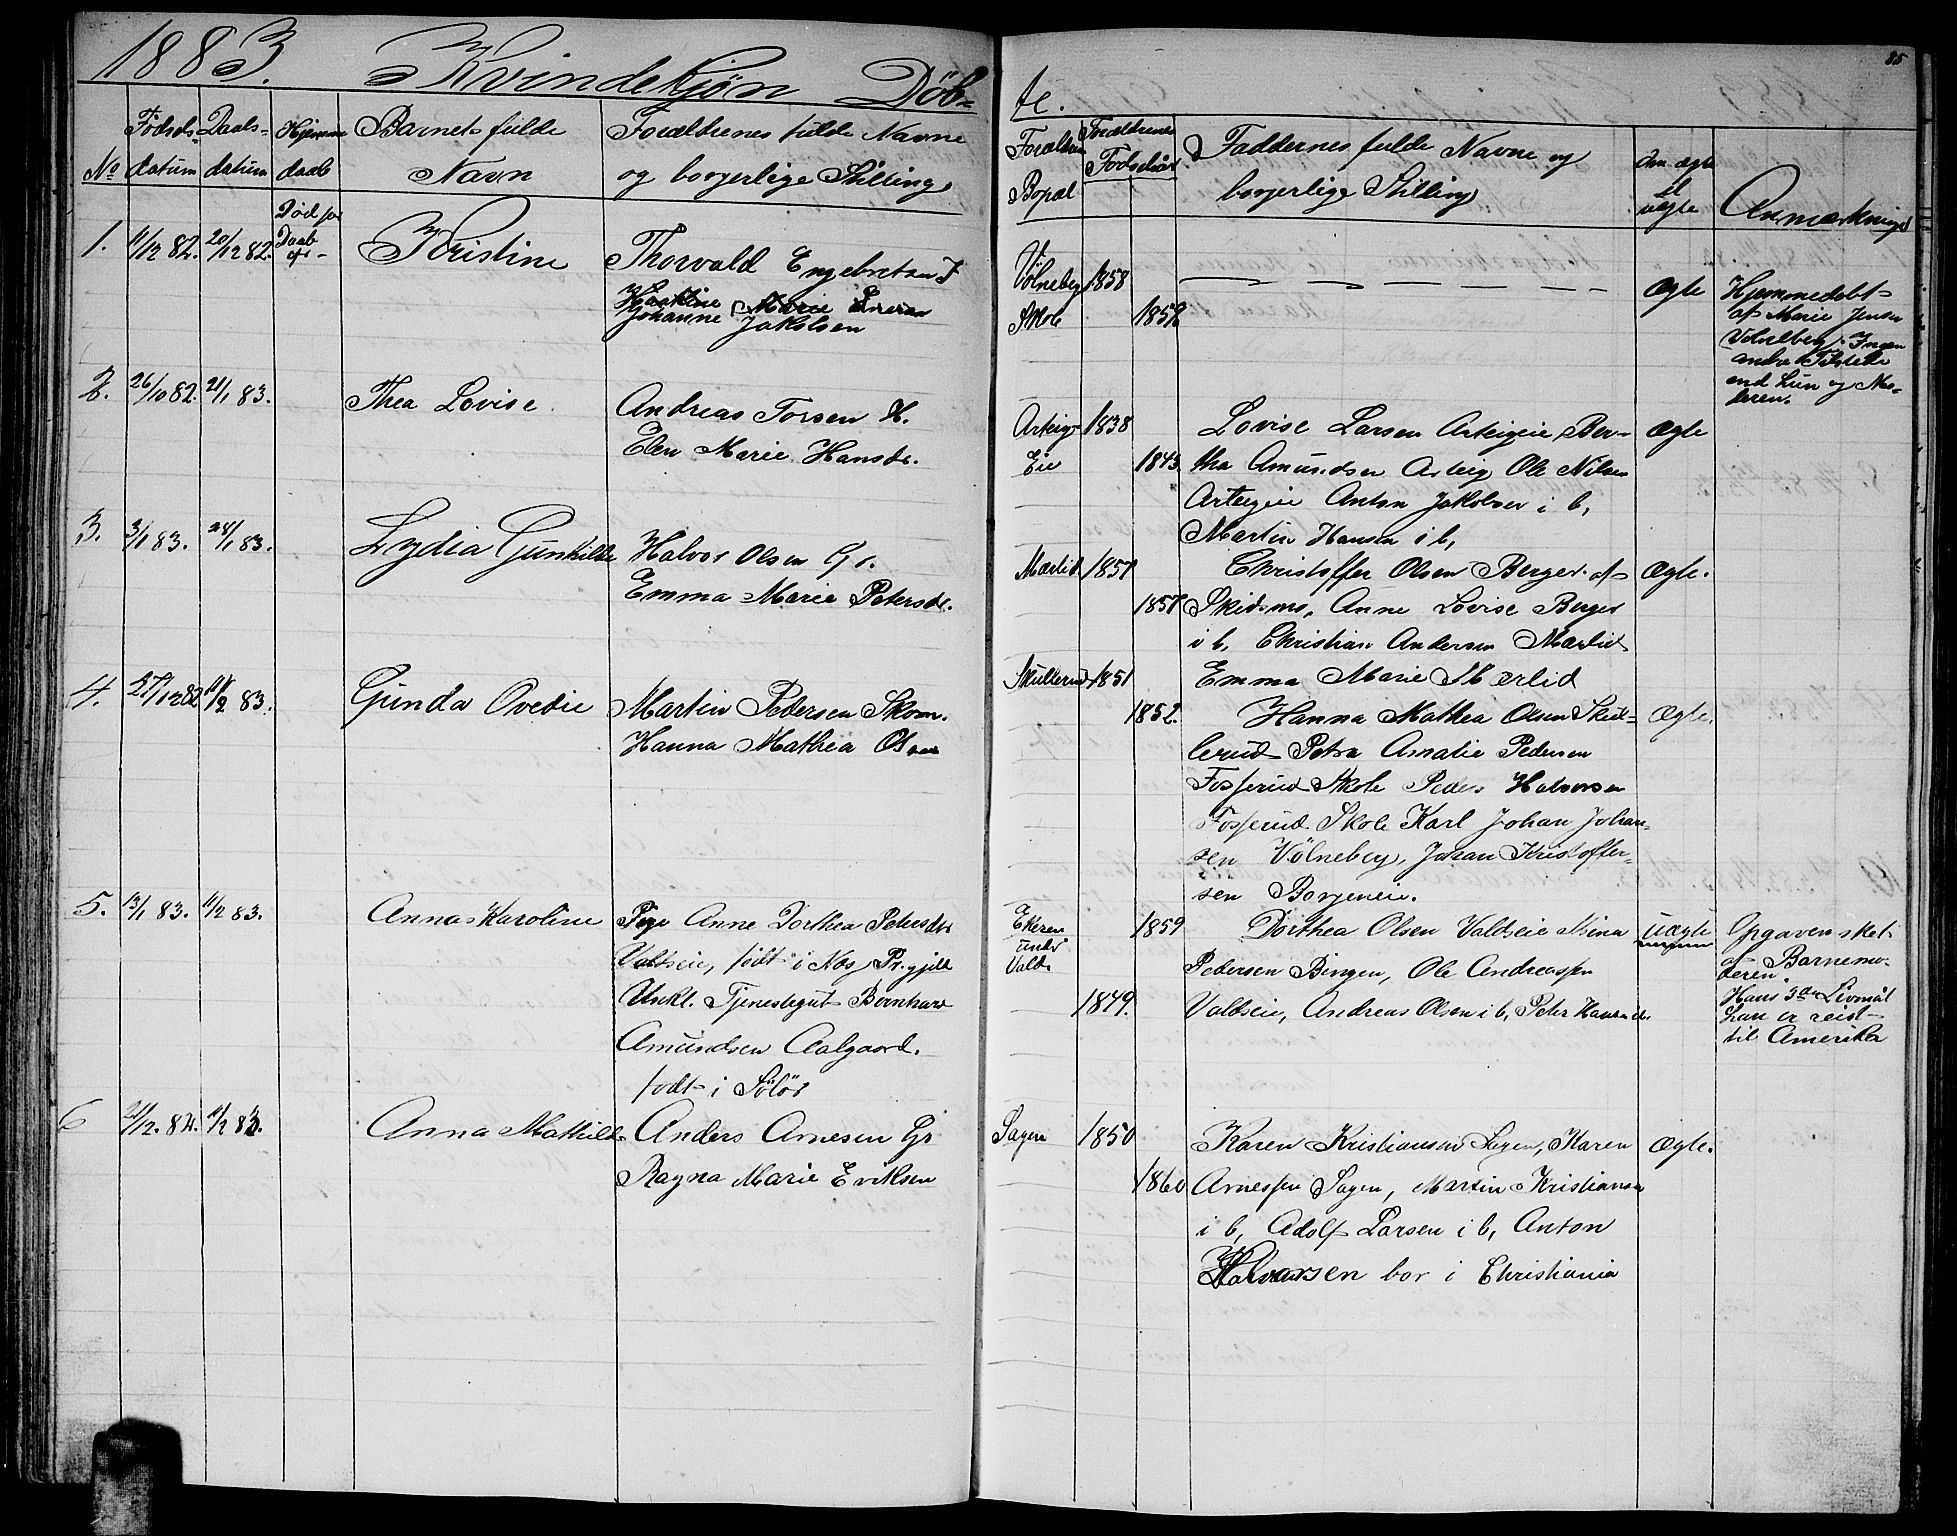 1883. Kvindekjøn Døb-
te.
85
No
Fødsels-
datum
Daabs-
datum
Hjemme
daab
Barnets fulde
Navn
Forældrenes fulde Navne
og borgerlige Stilling
Forældrenes
Bopæl
Forældrenes
Fødselsår
Faddernes fulde Navne og
borgerlige Stilling
Om ægte
el
uægte
Anmærkninger
1. 11/12 82. 20/12 82. Død før
Daab
Kristine
Thorvald Engebretsen
Johanne Marie
Jakobsen
Völneberg
Skole
1858
ægte
Hjemmedøbt
af Marie Jensen
Völneberg. Ingen
andre Tilstede
end hun og Mo-
deren.
2. 26/10 82. 21/1 83.
Thea Lovise
Andreas Torsen H.
Elen Marie Hansdr.
Arteig-
Eie
1838
1843.
Lovise Larsen Arteigeie, Ber-
tha Amundsen Arteig Ole Nilsen
Arteigeie Anton Jakobsen i b,
Martin Hansen i b,
Ægte
3. 3/1 83. 24/1 83.
Lydia Gunhilde
Halvor Olsen Gr.
Emma Marie Petersdr.
Mærlid
1857
1857
Christoffer Olsen Berger af
Skidsmo, Anne Lovise Berger
i b, Christian Andersen Mærlid
Emma Marie Mærlid
Ægte.
4. 27/12 82 11/2 83.
Gunda Ovedie
Martin Pedersen Skom.
Hanna Mathea Olsen
Skullerud
1851
1852.
Hanna Mathea Olsen Skul-
lerud Petra Amalie Pedersen
Fosserud Skole Peder Halvorsen
Fosserud Skole Karl Johan Johan-
sen Völneberg, Johan Kristoffer-
sen Borgeneie.
Ægte.
5. 13/1 83. 11/2 83.
Anna Karoline
Pige Anne Dorthea Petersdr
Valdseie, født i Næs Pr.gjeld
Unkl. Tjenestegut Bernhard
Amundsen Aalgaard.
født i Sölör
Ekeren
under
Valds
1859
1849.
Dorthea Olsen Valdseie Mina
Pedersen Bingen, Ole Andreassen
Valdseie, Andreas Olsen i b, Peter Hansen ib.
uægte
Opgaven sket
af Barnemo-
deren
Hans 3de Leiermål
han er reist
til Amerika
6 21/12. 82. 11/2 83.
Anna Mathilde
Anders Arnesen Gr
Ragna Marie Eriksen
Sagen
1850
1860
Karen Kristiansen Sagen, Karen
Arnessen Sagen, Martin Kristiansen
i b, Adolf Larsen i b, Anton
Halvorsen bor i Christiania
Ægte.